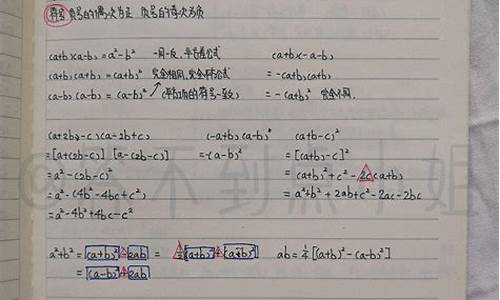 符号 负号的偶次为正 负号的奇次为负
(a+b)(a-b)=a²-b² 一同一反,平方差公式 (a+b)(-a-b)
(a+b)(a+b)=(a+b)² 完全相同,完全平方公式 =-(a+b)(a+b)
(a-b)(a-b)=(a-b)² (平方项的符号一致) =-(a+b)² 完全不同.
(a+2b-c)(a-2b+c) (-a+b)(a-b) (a+b-c)²
=[a+(2b-c)][a-(2b-c)] =-(a-b)² =[(a+b)-c]²
=a²-(2b-c)² =(a+b)²+c²-2c(a+b)
=a²-(4b²-4bc+c²) =a²+b²+2ab+c²-2ac-2bc
=a²-4b²+4bc-c²
a²+b²=(a+b)²-2ab = ½(a+b)²+(a-b)² ab=¼[(a+b)²-(a-b)²]
=(a-b)²+2ab